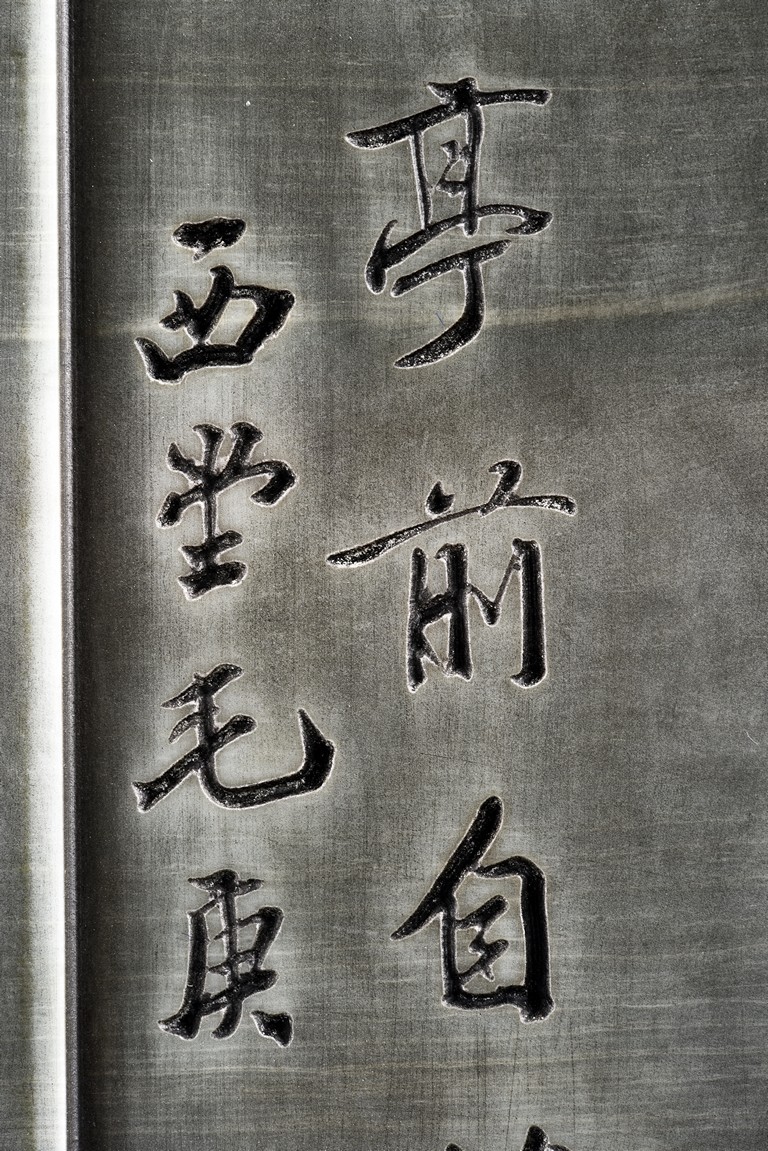 亭前自
西堂毛庚